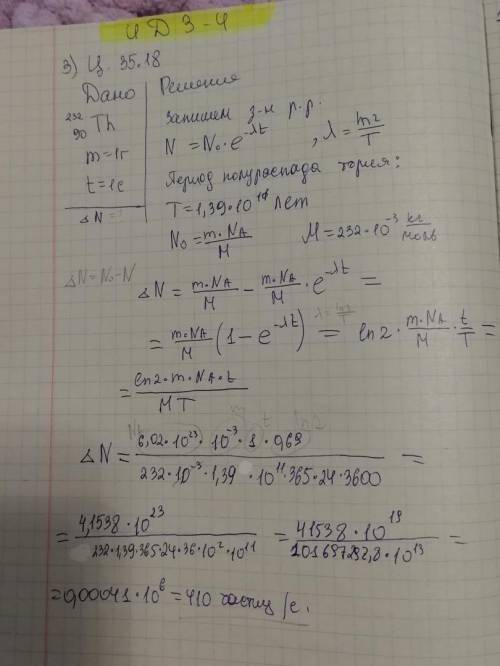 ИДЗ-4
3) Ц. 35.18
Дано Решение
²³²₉₀Th Запишем з-н р.р.
m=1г N = N₀·e^(-λt), λ = ln2/T
t=1с Период полураспада тория:
ΔN=? T=1,39·10¹⁰ лет
N₀ = m·Nᴀ/M M=232·10⁻³ кг/моль
ΔN=N₀-N ΔN = m·Nᴀ/M - m·Nᴀ/M · e^(-λt) =
= m·Nᴀ/M (1-e^(-λt)) = ln2 · m·Nᴀ/M · t/T = λ=ln2/T
= ln2·m·Nᴀ·t/MT
ΔN = 6,02·10²³·10⁻³·1·0,69/232·10⁻³·1,39·10¹¹·365·24·3600 =
= 4,1538·10²³/232·1,39·365·24·36·10²·10¹¹ = 41538·10¹⁹/101697292,8·10¹³ =
=0,00041·10⁶=410 частиц/с.